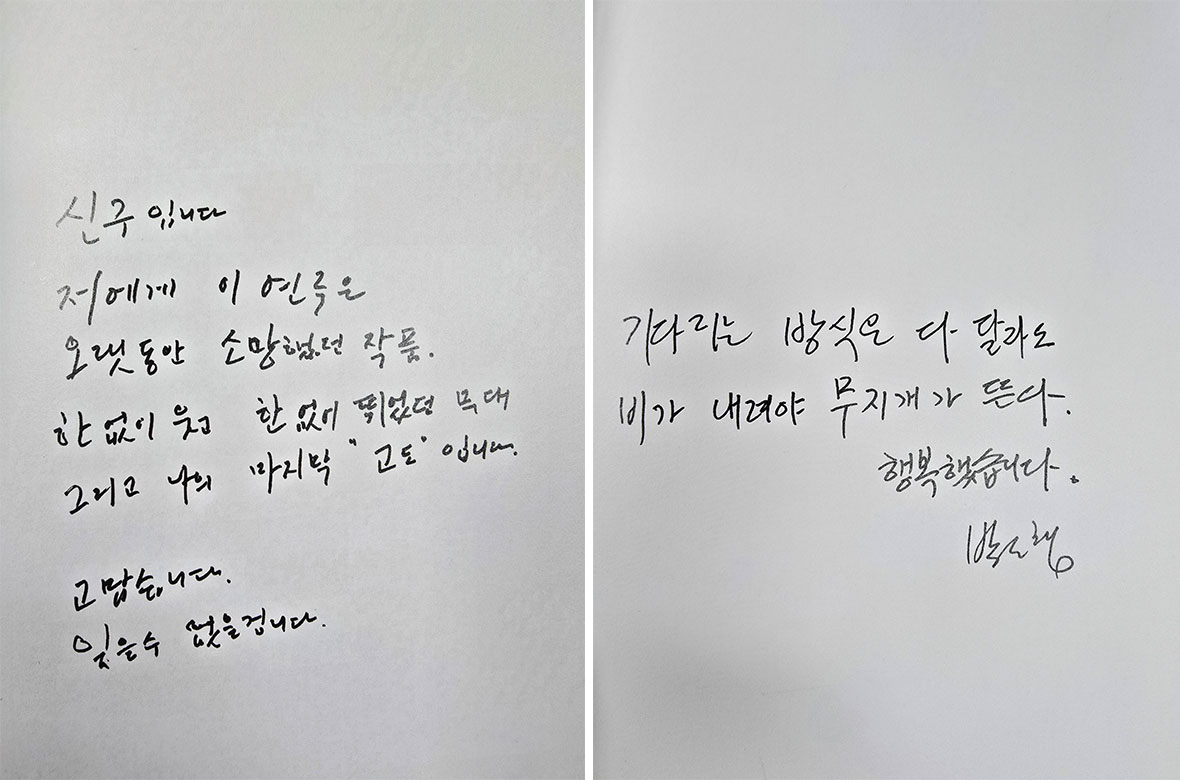 신구입니다
저에게 이 연극은
오랫동안 소망했던 작품.
한없이 웃고 한없이 뛰었던 무대
그리고 나의 마지막 "고도" 입니다.
고맙습니다.
잊을수 없을겁니다.
기다리는 방식은 다 달라도
비가 내려야 무지개가 뜬다.
행복했습니다.